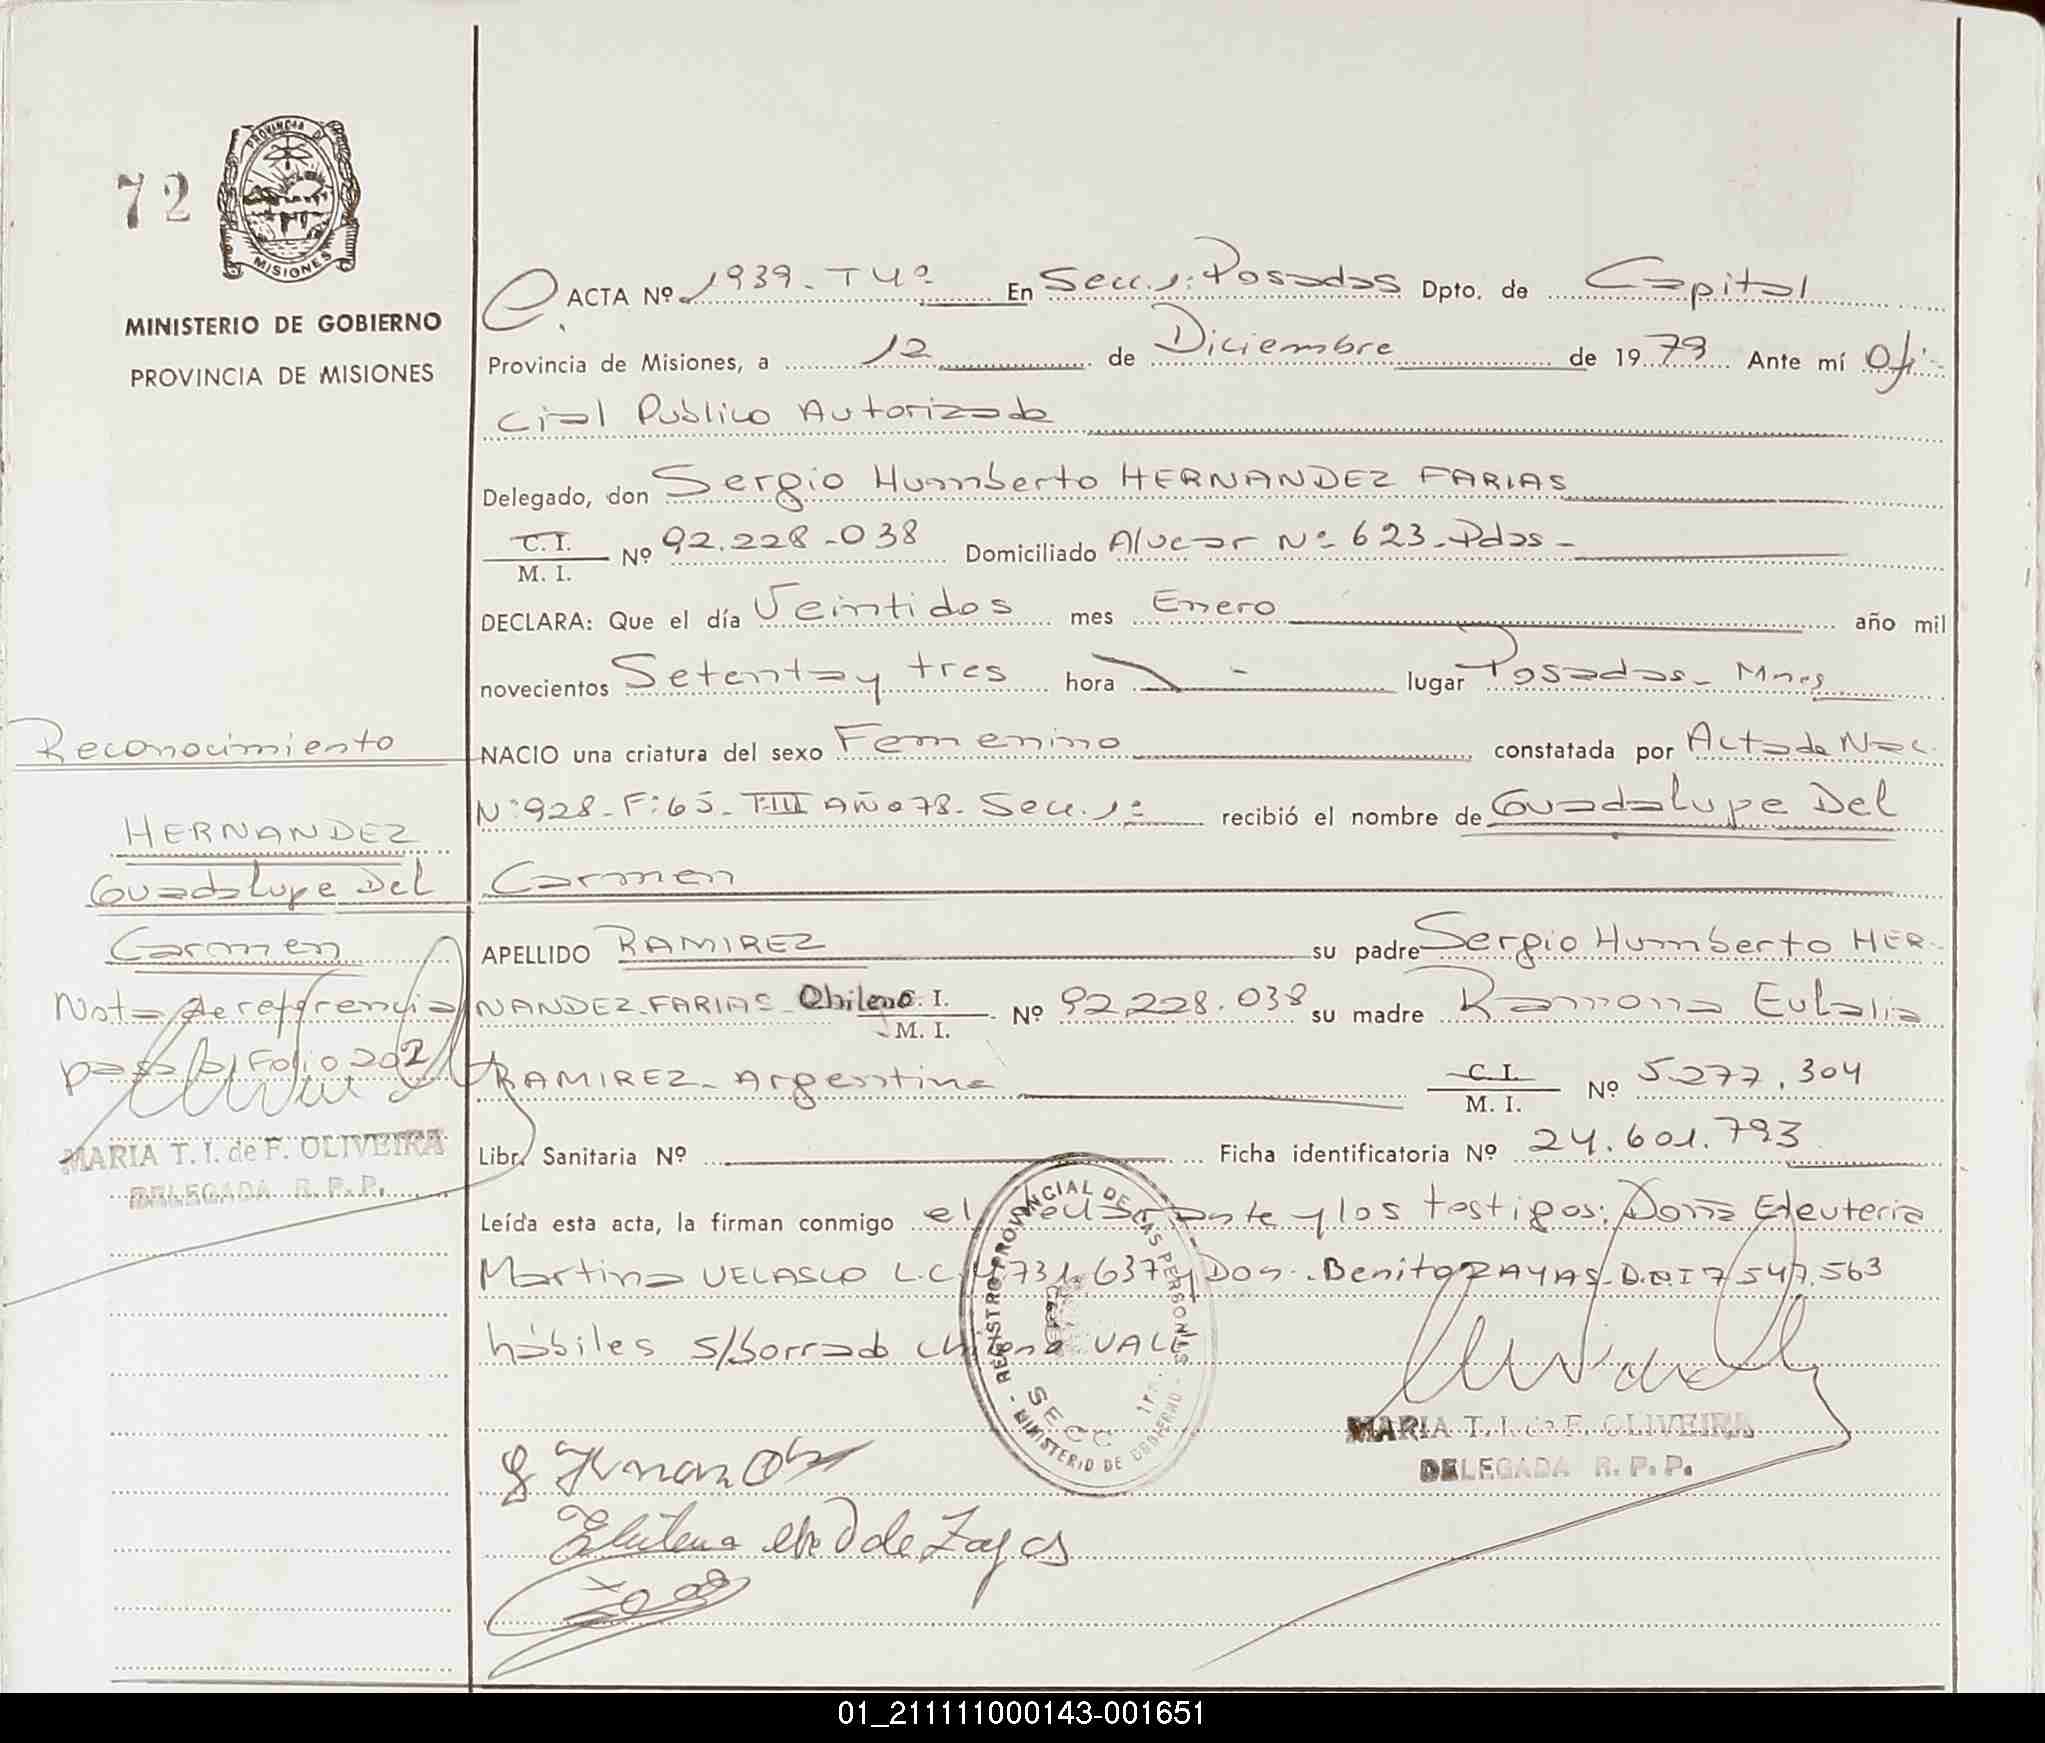 72
PROVINCIA D
MISIONES
MINISTERIO DE GOBIERNO
PROVINCIA DE MISIONES
ACTA Nº 1939 - T 4º En Secc. 1: Posadas Dpto. de Capital
Provincia de Misiones, a 12 de Diciembre de 1979 Ante mí Ofi-
cial Publico Autorizado
Delegado, don Sergio Humberto HERNANDEZ FARIAS
C. I. / M. I. Nº 92.228-038 Domiciliado Alvear Nº 623-Pdas-
DECLARA: Que el día Veintidos mes Enero año mil
novecientos Setenta y tres hora - lugar Posadas - Mnes
NACIO una criatura del sexo Femenino constatada por Acta de Nac.
Nº: 928- F: 65- T:III AÑO 78- Secc. 1º recibió el nombre de Guadalupe Del
Carmen
APELLIDO RAMIREZ su padre Sergio Humberto HER-
NANDEZ-FARIAS- Chileno C. I. / M. I. Nº 92.228.038 su madre Ramona Eulalia
RAMIREZ- Argentina C. I. / M. I. Nº 5.277.304
Libr. Sanitaria Nº Ficha identificatoria Nº 24.601.793
Leída esta acta, la firman conmigo el declarante y los testigos: Doña Eleuteria
Martina VELASCO L.C. 4731.637 y Don. Benito ZAYAS- D.N.I 7547.563
hábiles s/borrado chileno VALE
Reconocimiento
HERNANDEZ
Guadalupe Del
Carmen
Nota de referencia
pasa al Folio 202
MARIA T. I. de F. OLIVEIRA
DELEGADA R. P. P.
REGISTRO PROVINCIAL DE LAS PERSONAS
SECC 1ra.
MINISTERIO DE GOBIERNO
MARIA T. I. de F. OLIVEIRA
DELEGADA R. P. P.
de Zayas
01_211111000143-001651